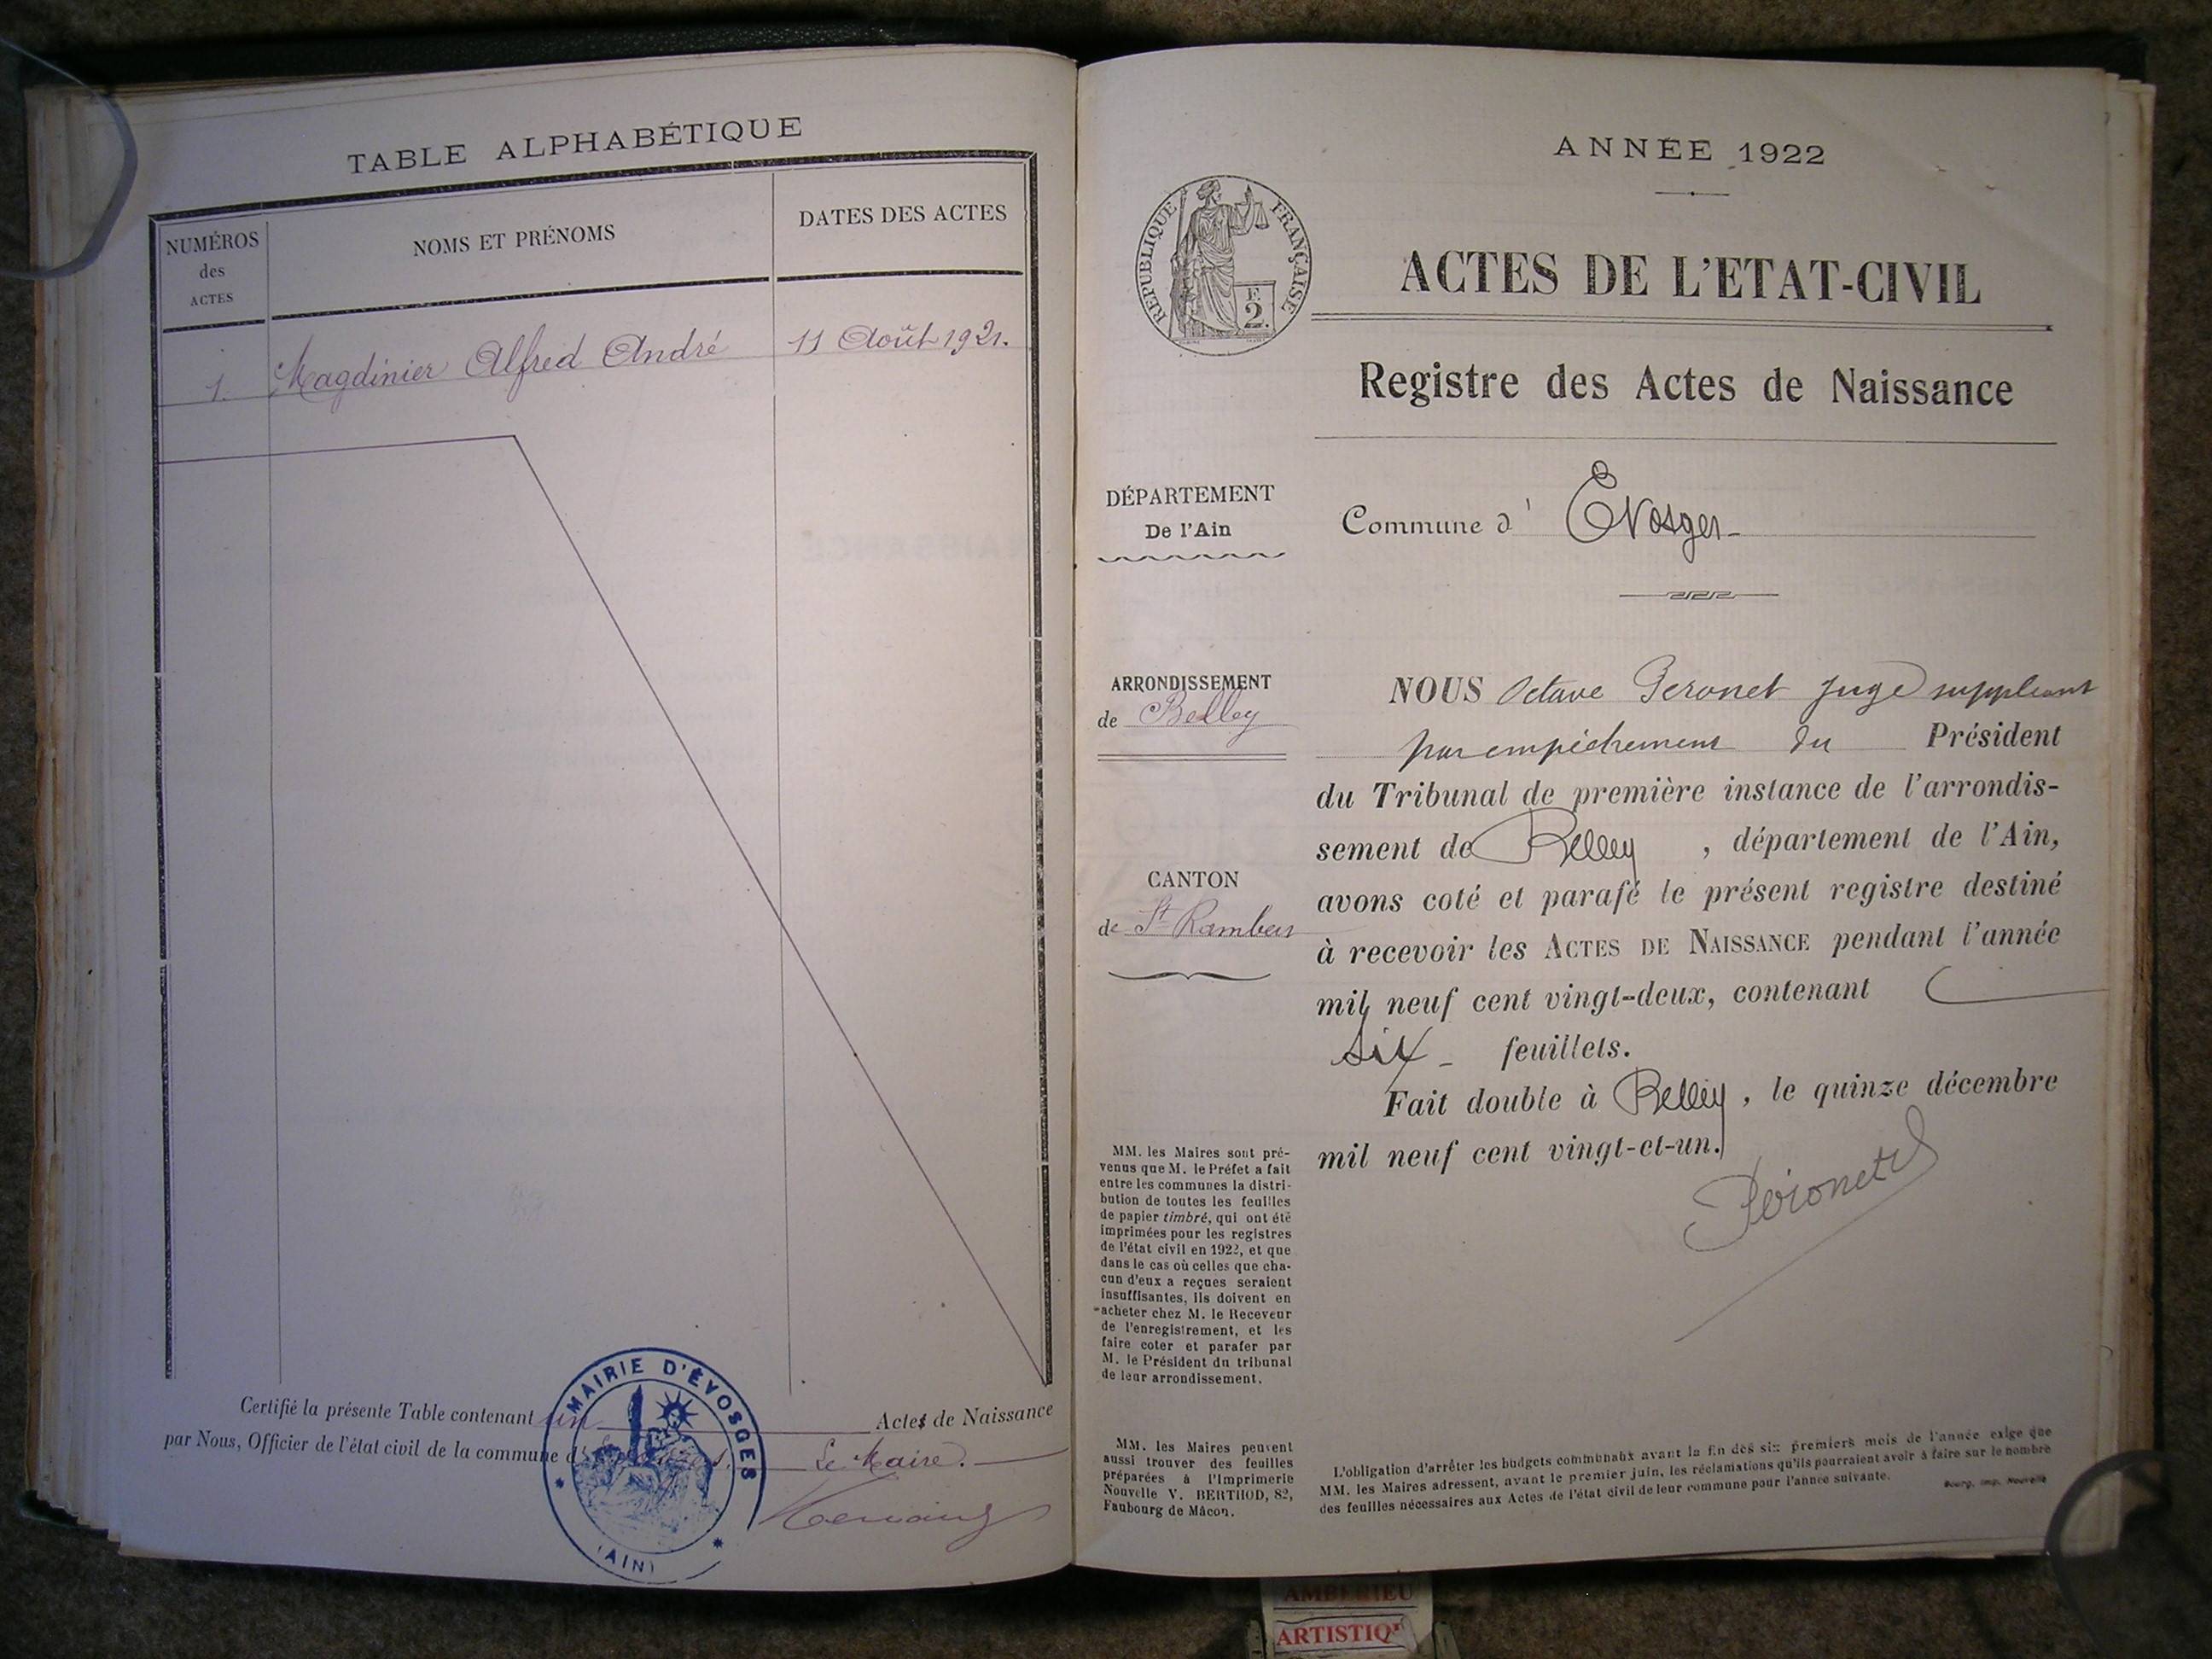 TABLE ALPHABÉTIQUE
NUMÉROS
des
ACTES
NOMS ET PRÉNOMS
DATES DES ACTES
1. Magdinier Alfred André 11 Août 1921.
Certifié la présente Table contenant un Actes de Naissance
par Nous, Officier de l'état civil de la commune d' Le Maire.
MAIRIE D'ÉVOSGES
(AIN)
ANNÉE 1922
RÉPUBLIQUE FRANÇAISE
F.
2.
ACTES DE L'ETAT-CIVIL
Registre des Actes de Naissance
DÉPARTEMENT
De l'Ain
Commune d' Evosges
ARRONDISSEMENT
de Belley
CANTON
de St Rambert
NOUS Octave Peronet juge suppleant
par empéchement du Président
du Tribunal de première instance de l'arrondis-
sement de Belley, département de l'Ain,
avons coté et parafé le présent registre destiné
à recevoir les ACTES DE NAISSANCE pendant l'année
mil neuf cent vingt-deux, contenant
six feuillets.
Fait double à Belley, le quinze décembre
mil neuf cent vingt-et-un.
Péronet
MM. les Maires sont pré-
venus que M. le Préfet a fait
entre les communes la distri-
bution de toutes les feuilles
de papier timbré, qui ont été
imprimées pour les registres
de l'état civil en 1922, et que
dans le cas où celles que cha-
cun d'eux a reçues seraient
insuffisantes, ils doivent en
acheter chez M. le Receveur
de l'enregistrement, et les
faire coter et parafer par
M. le Président du tribunal
de leur arrondissement.
MM. les Maires peuvent
aussi trouver des feuilles
préparées à l'Imprimerie
Nouvelle V. BERTHOD, 82,
Faubourg de Mâcon.
L'obligation d'arrêter les budgets communaux avant la fin des six premiers mois de l'année exige que
MM. les Maires adressent, avant le premier juin, les réclamations qu'ils pourraient avoir à faire sur le nombre
des feuilles nécessaires aux Actes de l'état civil de leur commune pour l'année suivante.
Bourg, Imp. Nouvelle
AMBERIEU
ARTISTIQ